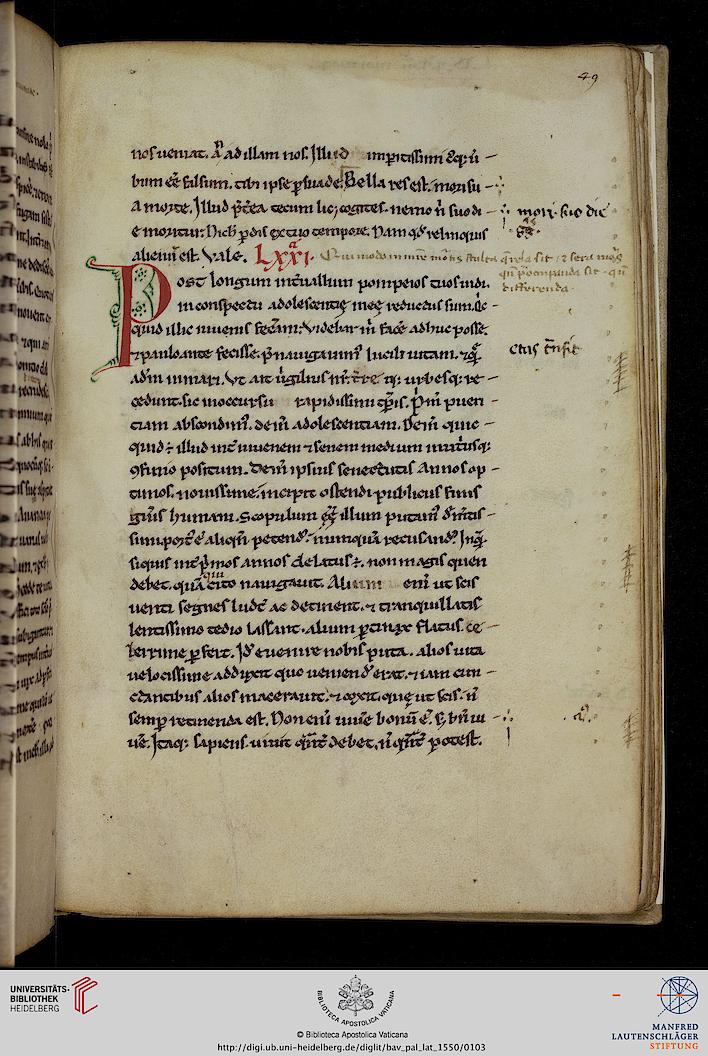 49
nos ueniat. Aͫ ad illam nos. Illud impitissimi
bum eē falsum. tibi ipse psuade. Bella res est. mori su
a morte. Illud p̄t̄ea tecum lic; cogites. nemo n̄ suo di
e moritur. Nich pdis ex tuo tempore. Nam qd̄ relinquis
alienū est. Vale. LXXI.
mori suo die
differenda
Post longum int̄uallum pompeios tuos uidi.
in conspectu adolescentię meę reductus sum. Qͥc
quid illic iuuenis fecam: Videbar m̄ facē adhuc posse.
⁊ paulo ante fecisse. P̄nauigauim᷑ lucili uitam. ⁊
etas t̄nsit
adm̄ in mari. Vt ait ūgilius nr̄. t̄re tq: urbesq: re
cedunt. sic in oc cursu rapidissimi tp̄is. Pͥm pueri
ciam abscondim᷑. dein̄ adolescentiam. Dein̄ quic
quid ÷ illud int̄ iuuenem ⁊ senem medium in ut̄usq:
ɔfinio positum. Dein̄ ipsius senectutis annos op
timos. nouissime. incipit ostendi publicus finis
gn̄is humani. Scopulum eē illum putam᷑ dm̄tis
sim. port᷑ ē aliqn̄ petend᷑. nunquā recusand᷑. In
siquis int̄ pͥmos annos delatus ÷. non magis queri
debet. quā qui cito nauigauit. Alium eni᷑ ut scis
uenti segnes ludt̄ ac detinent. ⁊ tranquillatis
lentissimo tedio lassant. alium ptinax flatus. ce
lerrime pfert. Id̄ euenire nobis puta. alios uita
uelocissime adduxit quo ueniend᷑ erat. ⁊ iam cun
ctantibus alios macerauit. ⁊ coxit. quę ut scis. n̄
semp retinenda est. Non eni᷑ uiuē bonū ē. s; bn̄ ui
uē. Itaq: sapiens. uiuit qn̄t᷑ debet. n̄ qn̄t᷑ potest.
UNIVERSITÄTS-
BIBLIOTHEK
HEIDELBERG
BIBLIOTHECA APOSTOLICA VATICANA
© Biblioteca Apostolica Vaticana
http://digi.ub.uni-heidelberg.de/diglit/bav_pal_lat_1550/0103
MANFRED
LAUTENSCHLÄGER
STIFTUNG